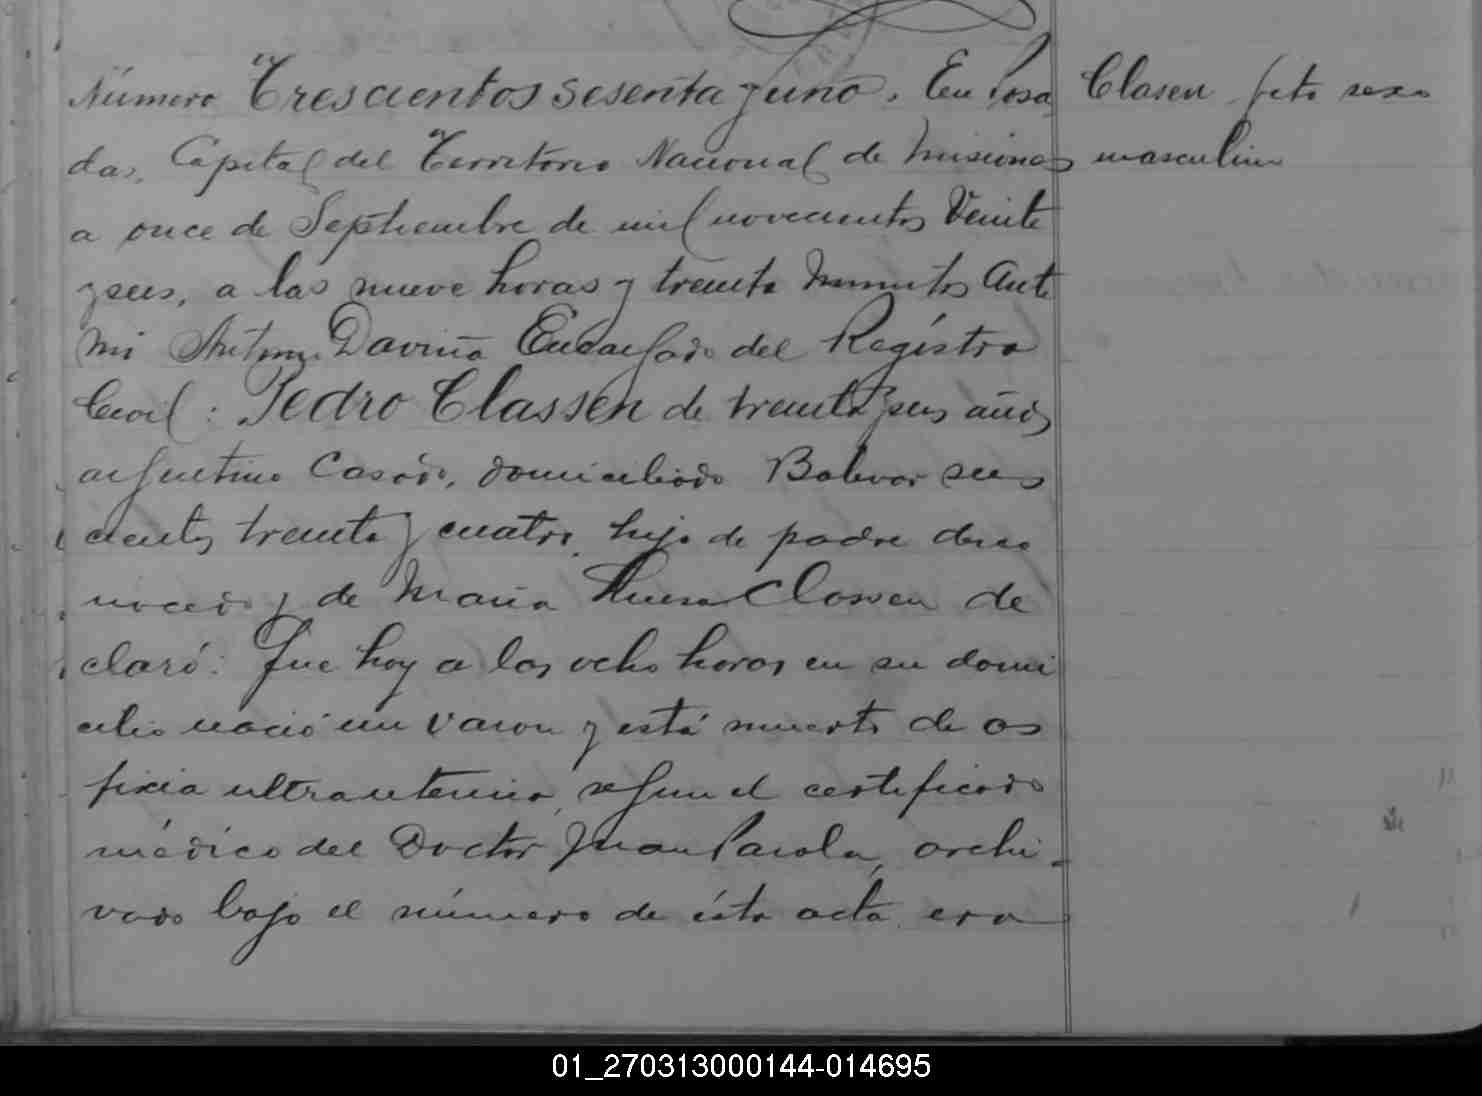 Número Trescientos sesenta y uno. En Posa
das, Capital del Territorio Nacional de Misiones
a once de Septiembre de mil novecientos Veinte
y seis, a las nueve horas y treinta minutos Ante
mi Antonio Daviña Encargado del Registro
Civil: Pedro Classen de treinta y seis años
argentino Casado, domiciliado Bolivar seis
cientos treinta y cuatro, hijo de padre desco
nocido y de Maria Classen de
claró: Que hoy a las ocho horas en su domi
cilio nació un varon y está muerto de as
fixia ultrauterina, segun el certificado
médico del Doctor Juan Parola, archi-
vado bajo el número de ésta acta, era
Clasen feto sexo
masculino
01_270313000144-014695